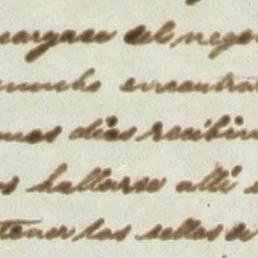 encargase del nego
mucho encontrar
unos dias recibim
s hallarse alli
tener los sellos de